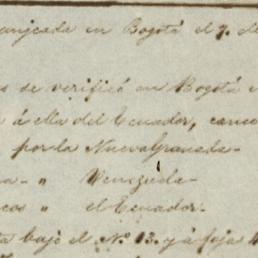 anjeada en Bogotá el 7. de
s se verificó en Bogotá e
á ella del Ecuador, canc
por la Nueva Granada-
a- " Venezuela-
cos " el Ecuador.
a bajo el N.º 13. y á foja 4